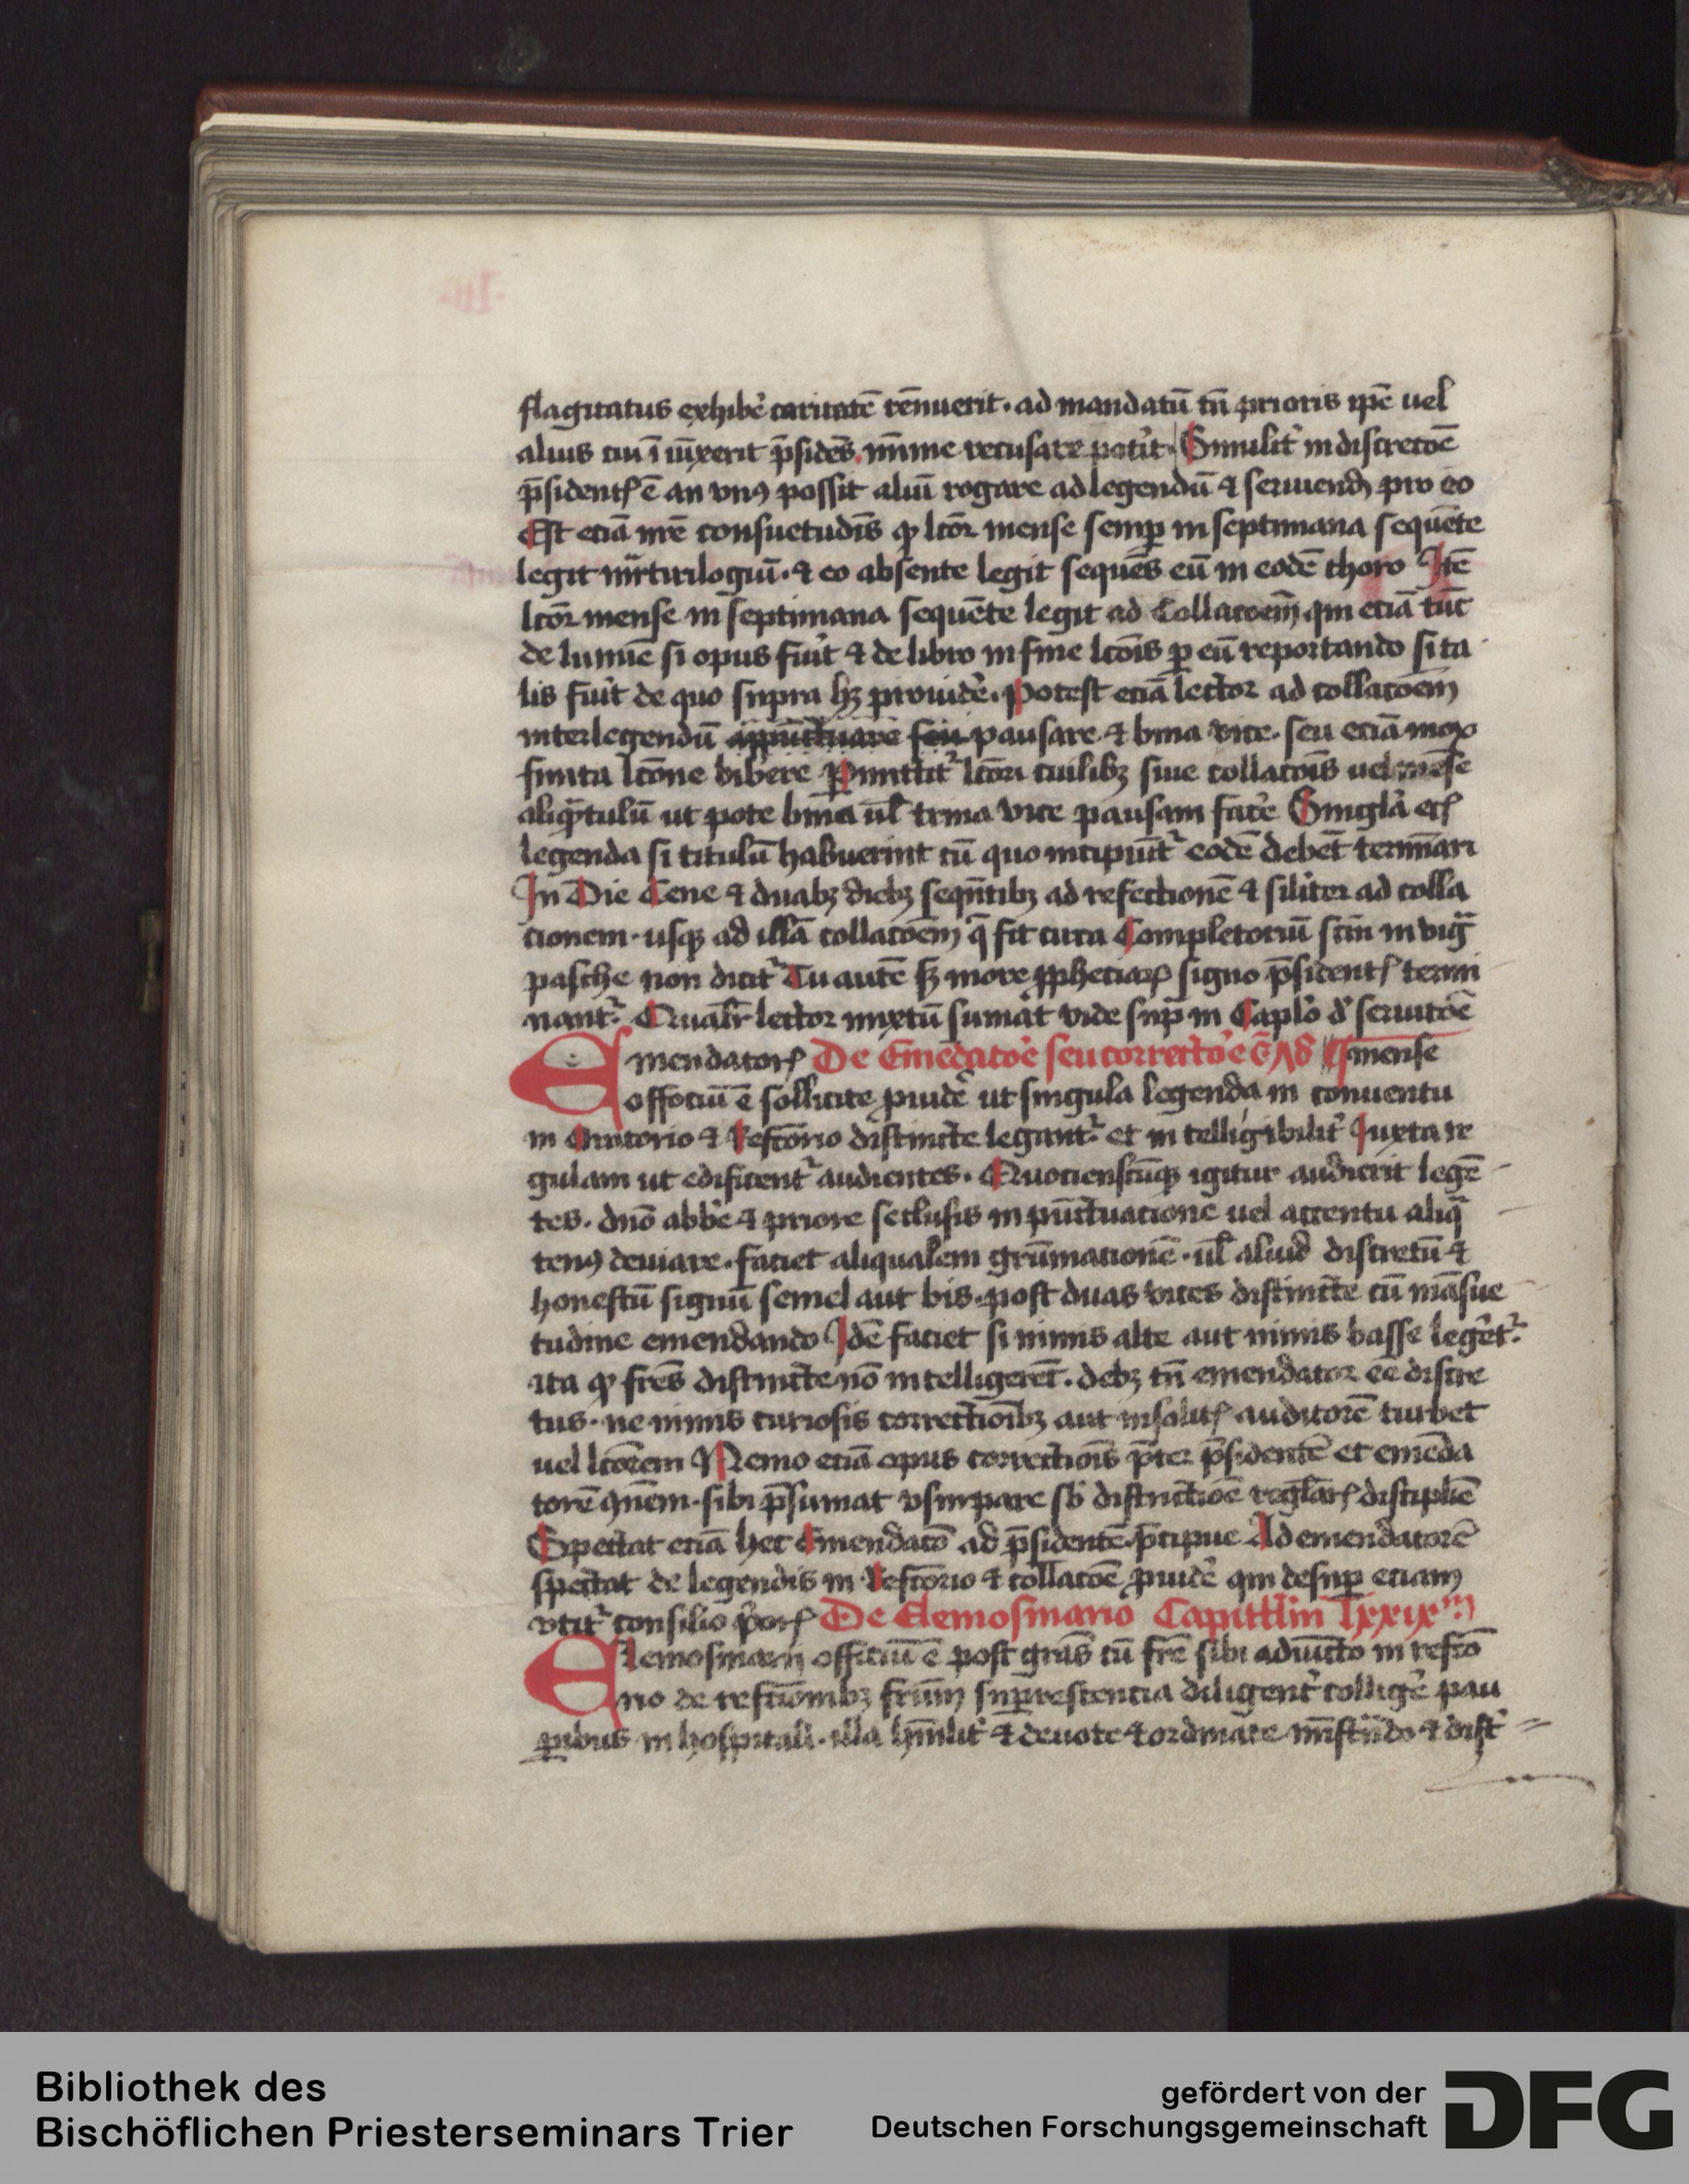 flagitatus exhibe᷒ caritatē rēnuerit. ad mandatū tn̄ prioris ipē uel
alius cui īiūxerit p̄sidēs, mīme recusare potit᷒. Similit᷒ in discretoē
p̄sidentꝭ ē an vnꝯ possit aliū rogare ad legendū ⁊ seruiend̄ pro eo
Est eciā nrē consuetudīs ꝙ lcōr mense semꝑ in septimana sequēte
legit mr̄tirilogiū. ⁊ eo absente legit sequēs eū in eodē choro Itē
lcōr mense in septimana sequēte legit ad Collacoem̄ qui eciā tūc
de lumīe si opus fuit᷒ ⁊ de libro in fine lcōis ꝑ eū reportando si ta
lis fuit᷒ de quo supra hꝫ prouide᷒. Potest eciā lector ad collacoem̄
inter legendū appūctuare seu pausare ⁊ bina vice. seu eciā mox
finita lcōne bibere ꝑmittit᷒ lcōri cuilibꝫ siue collacōis uel mēse
aliqᷓtulū ut pote bina ul̄ trina vice pausam face᷒ Singla᷒ ecꝭ
legenda si titulū habuerint cū quo incipiūt᷒ eodē debēt terminari
In Die Cene ⁊ duabꝫ diebꝫ seqn̄tibꝫ ad refectionē ⁊ silit᷒er ad colla
tionem. usqꝫ ad illā collacoēm q̄ fit circa Completoriū scīm in vigᷓ
pasche non dicit᷒ Tu autē sꝫ more ꝓpheciaꝝ signo p̄sidentꝭ termi
nant᷒. Qualr̄ lector mixtū sumat vide sup̄ in Caplo᷒ d᷒ seruitoē
Emendatorꝭ De Emēdatoē seu correctoē mense
officiū ē sollicite ꝓuide᷒ ut singula legenda in conuentu
in Oratorio ⁊ Refcōrio distincte legant᷒ et in telligibilit᷒ Iuxta re
gulam ut edificent᷒ audientes. Quocienscūqꝫ igitur audierit legē
tes. dnō abbe᷒ ⁊ priore seclusis in pūctuacione uel accentu aliqᷓ
tenꝯ deuiare. faciet aliqualem grūmacionē. ul̄ aliud discretū ⁊
honestū signū semel aut bis. post duas vices distincte cū māsue
tudine emendando Idē faciet si nimis alte aut nimis basse leget᷒.
ita ꝙ frēs distincte nō intelligerēt. debꝫ tn̄ emendator eē discre
tus. ne nimis curiosis correctiōibꝫ aut insolitꝭ auditorē turbet
uel lcōrem Nemo eciā opus correctiōis p̄ter p̄sidentē et emēda
torē sibi p̄sumat vsurpare sb᷒ districtioē reglārꝭ disciplīe
Spectat eciā hec Emendacō ad p̄sidentē p̄cipue Ad emendatorē
spectat de legendis in Refcōrio ⁊ collacoē ꝓuide᷒ qui desuꝑ eciam
vtit᷒ consilio p᷒orꝭ De Elemosinario Capitl̄m lxxixᵐ
Elemosinarij officiū ē post grās cū frē sibi adiūcto in refcō
rio de refcīonibꝫ frīum superescencia diligent᷒ collige᷒ pau
ꝑibus in hospitali. illa hūilit᷒ ⁊ deuote ⁊ ordinate ⁊ dist᷒
Bibliothek des
Bischöflichen Priesterseminars Trier
gefördert von der
Deutschen Forschungsgemeinschaft
DFG